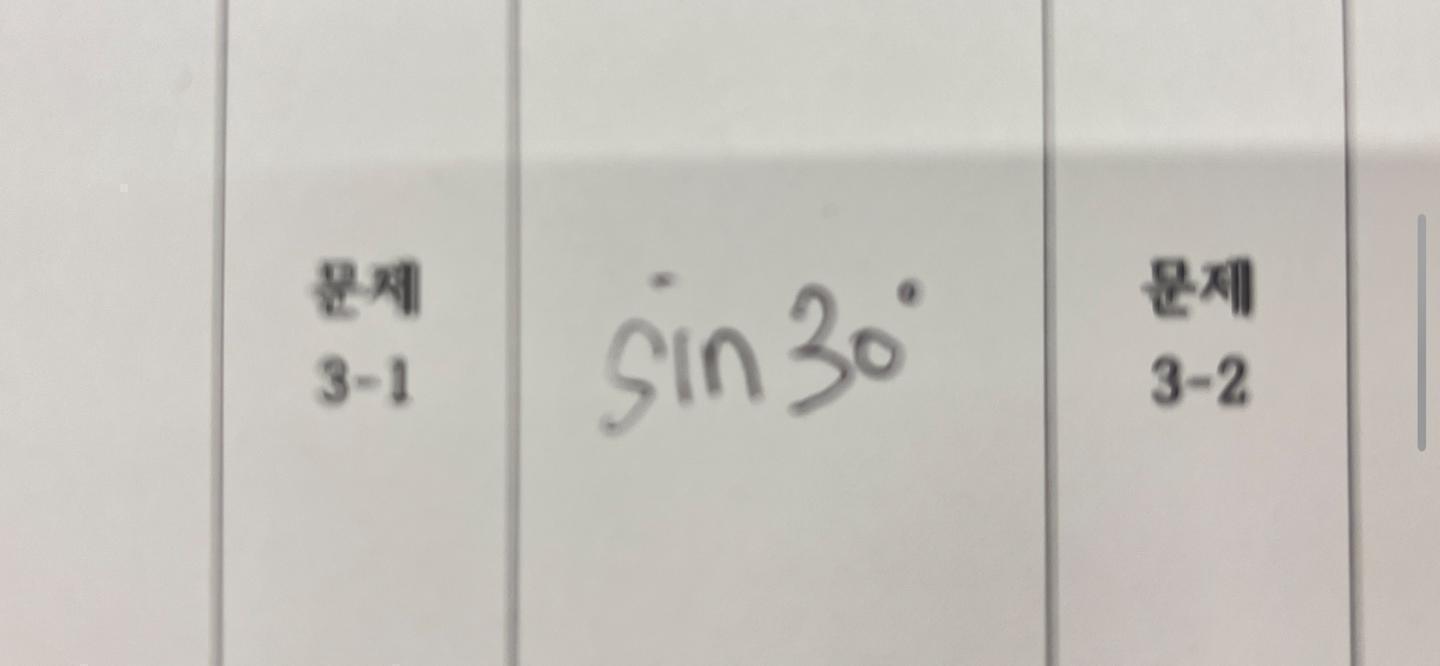 문제
3-1
sin 30°
문제
3-2